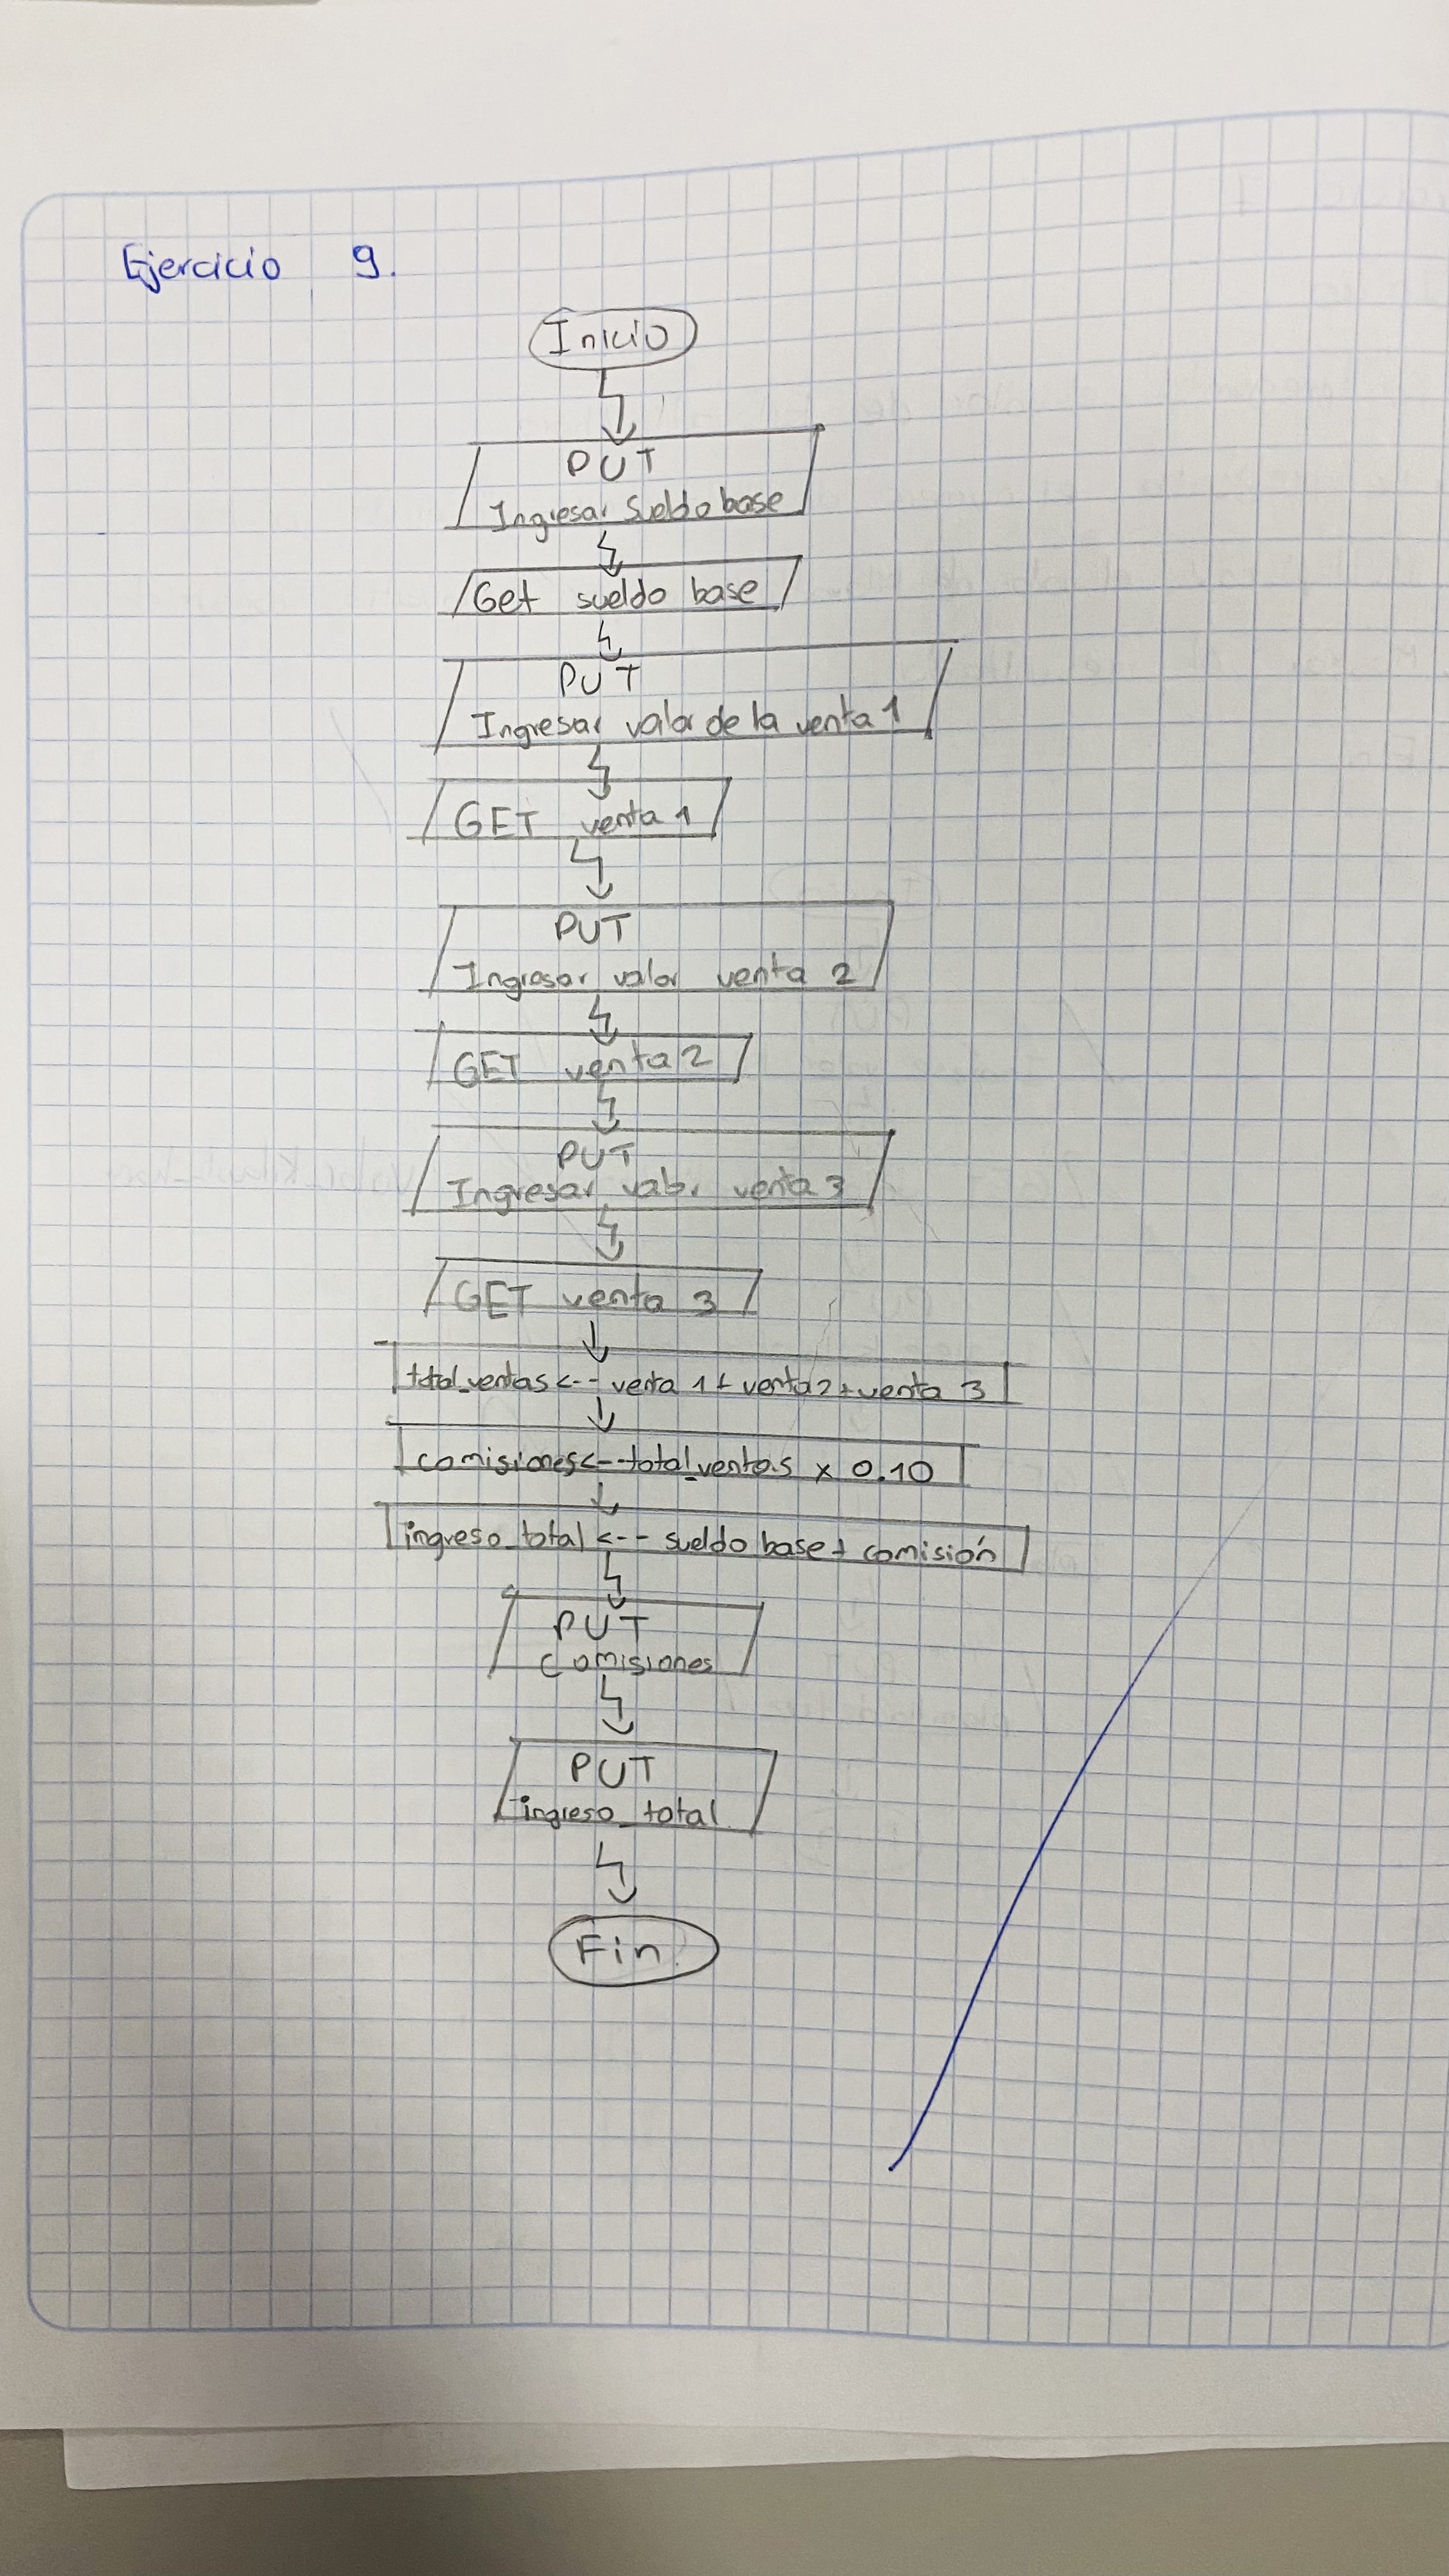 Ejercicio 9.
Inicio
PUT
Ingresar Sueldo base
Get sueldo base
PUT
Ingresar valor de la venta 1
GET venta 1
PUT
Ingresar valor venta 2
GET venta 2
PUT
Ingresar valor venta 3
GET venta 3
total_ventas <-- venta 1 + venta 2 + venta 3
comisiones <-- total_ventas x 0.10
ingreso_total <-- sueldo base + comisión
PUT
comisiones
PUT
ingreso_total
Fin